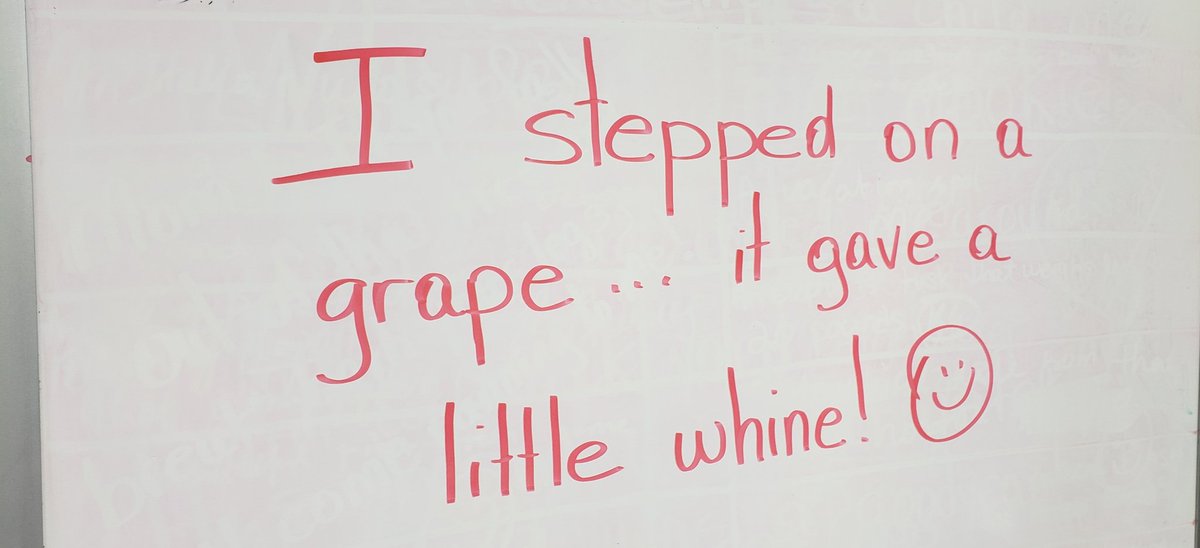 I stepped on a
grape... it gave a
little whine!